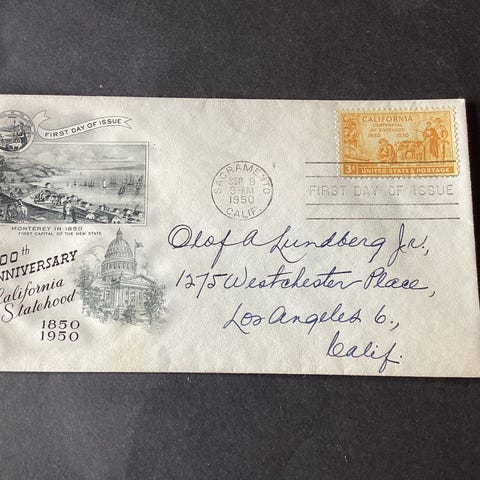 FIRST DAY OF ISSUE
MONTEREY IN 1850
FIRST CAPITAL OF THE NEW STATE
00th
ANNIVERSARY
California
Statehood
1850
1950
SACRAMENTO
SEP 9
9-AM
1950
CALIF.
CALIFORNIA
CENTENNIAL
OF STATEHOOD
1850 1950
3¢ UNITED STATES POSTAGE
FIRST DAY OF ISSUE
Olof A. Lundberg Jr.,
1275 Westchester Place,
Los Angeles 6.,
Calif.